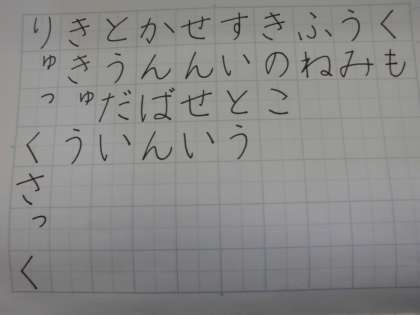 くも
うみ
ふね
きのこ
すいとう
せんせい
かんばん
とうだい
ききゅう
りゅっくさっく